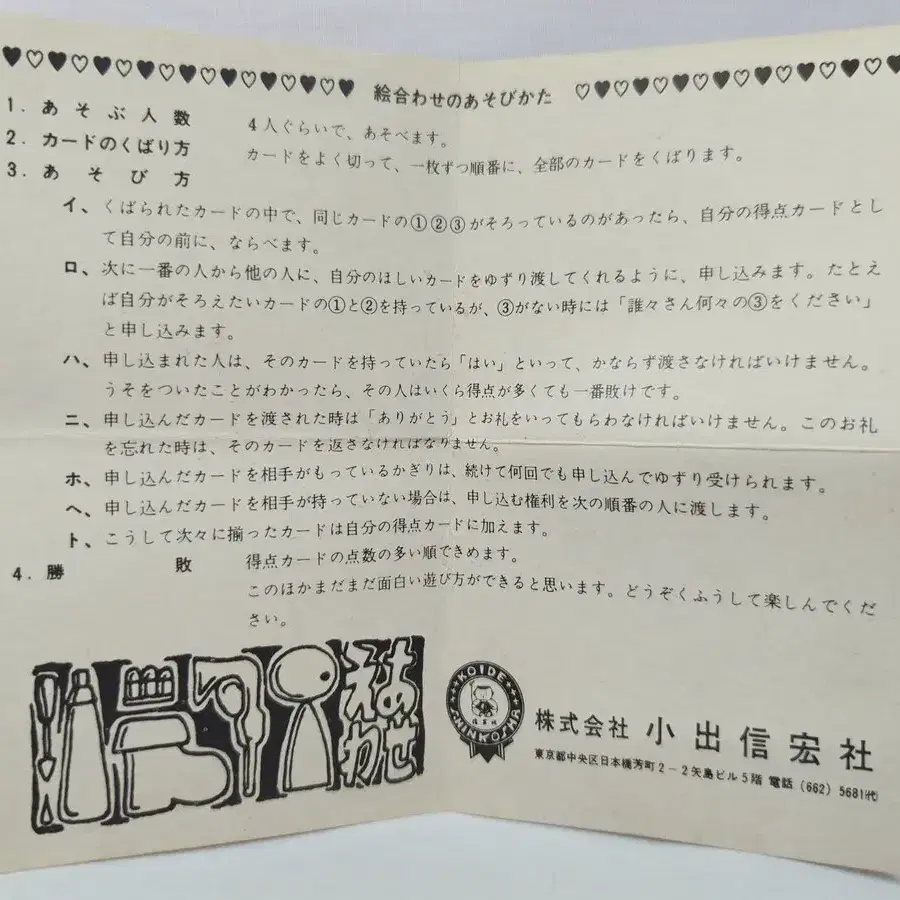 ♥♡♥♡♥♡♥♡♥♡♥♡♥♡♥ 絵合わせのあそびかた ♡♥♡♥♡♥♡♥♡♥♡♥♡♥
1. あそぶ人数 4人ぐらいで、あそべます。
2. カードのくばり方 カードをよく切って、一枚ずつ順番に、全部のカードをくばります。
3. あそび方
イ、くばられたカードの中で、同じカードの①②③がそろっているのがあったら、自分の得点カードとし
て自分の前に、ならべます。
ロ、次に一番の人から他の人に、自分のほしいカードをゆずり渡してくれるように、申し込みます。たとえ
ば自分がそろえたいカードの①と②を持っているが、③がない時には「誰々さん何々の③をください」
と申し込みます。
ハ、申し込まれた人は、そのカードを持っていたら「はい」といって、かならず渡さなければいけません。
うそをついたことがわかったら、その人はいくら得点が多くても一番敗けです。
ニ、申し込んだカードを渡された時は「ありがとう」とお礼をいってもらわなければいけません。このお礼
を忘れた時は、そのカードを返さなければなりません。
ホ、申し込んだカードを相手がもっているかぎりは、続けて何回でも申し込んでゆずり受けられます。
ヘ、申し込んだカードを相手が持っていない場合は、申し込む権利を次の順番の人に渡します。
ト、こうして次々に揃ったカードは自分の得点カードに加えます。
4. 勝敗 得点カードの点数の多い順できめます。
このほかまだまだ面白い遊び方ができると思います。どうぞくふうして楽しんでくだ
さい。
えあわせ
KOIDE
SHINKOSHA
株式会社 小出信宏社
東京都中央区日本橋芳町2-2矢島ビル5階 電話 (662) 5681㈹